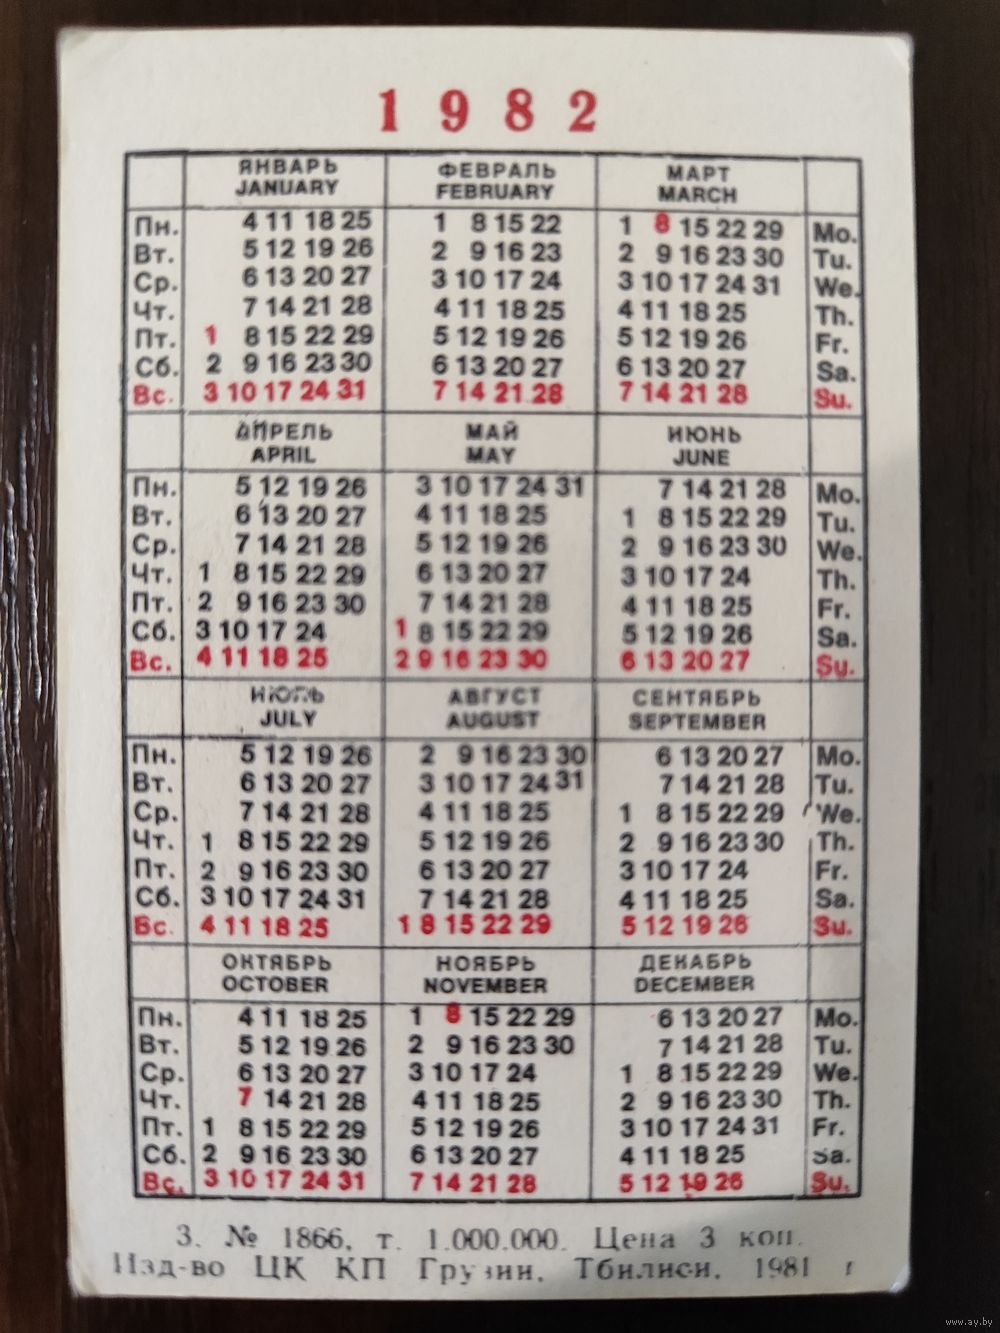 1982
ЯНВАРЬ ФЕВРАЛЬ МАРТ
JANUARY FEBRUARY MARCH
Пн. 4 11 18 25 1 8 15 22 1 8 15 22 29 Mo.
Вт. 5 12 19 26 2 9 16 23 2 9 16 23 30 Tu.
Ср. 6 13 20 27 3 10 17 24 3 10 17 24 31 We.
Чт. 7 14 21 28 4 11 18 25 4 11 18 25 Th.
Пт. 1 8 15 22 29 5 12 19 26 5 12 19 26 Fr.
Сб. 2 9 16 23 30 6 13 20 27 6 13 20 27 Sa.
Вс. 3 10 17 24 31 7 14 21 28 7 14 21 28 Su.
АПРЕЛЬ МАЙ ИЮНЬ
APRIL MAY JUNE
Пн. 5 12 19 26 3 10 17 24 31 7 14 21 28 Mo.
Вт. 6 13 20 27 4 11 18 25 1 8 15 22 29 Tu.
Ср. 7 14 21 28 5 12 19 26 2 9 16 23 30 We.
Чт. 1 8 15 22 29 6 13 20 27 3 10 17 24 Th.
Пт. 2 9 16 23 30 7 14 21 28 4 11 18 25 Fr.
Сб. 3 10 17 24 1 8 15 22 29 5 12 19 26 Sa.
Вс. 4 11 18 25 2 9 16 23 30 6 13 20 27 Su.
ИЮЛЬ АВГУСТ СЕНТЯБРЬ
JULY AUGUST SEPTEMBER
Пн. 5 12 19 26 2 9 16 23 30 6 13 20 27 Mo.
Вт. 6 13 20 27 3 10 17 24 31 7 14 21 28 Tu.
Ср. 7 14 21 28 4 11 18 25 1 8 15 22 29 We.
Чт. 1 8 15 22 29 5 12 19 26 2 9 16 23 30 Th.
Пт. 2 9 16 23 30 6 13 20 27 3 10 17 24 Fr.
Сб. 3 10 17 24 31 7 14 21 28 4 11 18 25 Sa.
Вс. 4 11 18 25 1 8 15 22 29 5 12 19 26 Su.
ОКТЯБРЬ НОЯБРЬ ДЕКАБРЬ
OCTOBER NOVEMBER DECEMBER
Пн. 4 11 18 25 1 8 15 22 29 6 13 20 27 Mo.
Вт. 5 12 19 26 2 9 16 23 30 7 14 21 28 Tu.
Ср. 6 13 20 27 3 10 17 24 1 8 15 22 29 We.
Чт. 7 14 21 28 4 11 18 25 2 9 16 23 30 Th.
Пт. 1 8 15 22 29 5 12 19 26 3 10 17 24 31 Fr.
Сб. 2 9 16 23 30 6 13 20 27 4 11 18 25 Sa.
Вс. 3 10 17 24 31 7 14 21 28 5 12 19 26 Su.
З. № 1866. т. 1.000.000. Цена 3 коп.
Изд-во ЦК КП Грузии. Тбилиси. 1981 г
www.ay.by